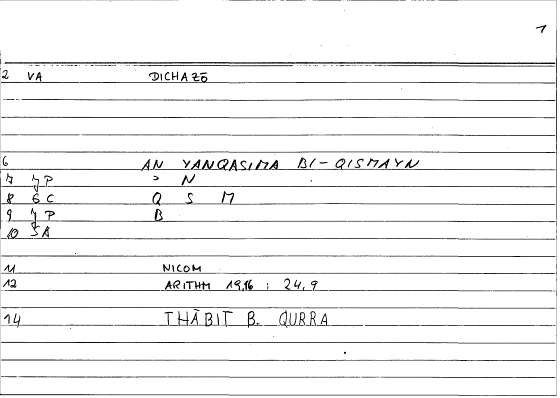 1
2 VA DICHAZŌ
6 AN YANQASIMA BI-QISMAYN
7 4P ʾ N
8 6C Q S M
9 4P B
10 5A
11 NICOM
12 ARITHM 19,16 ; 24,9
14 THĀBIT B. QURRA